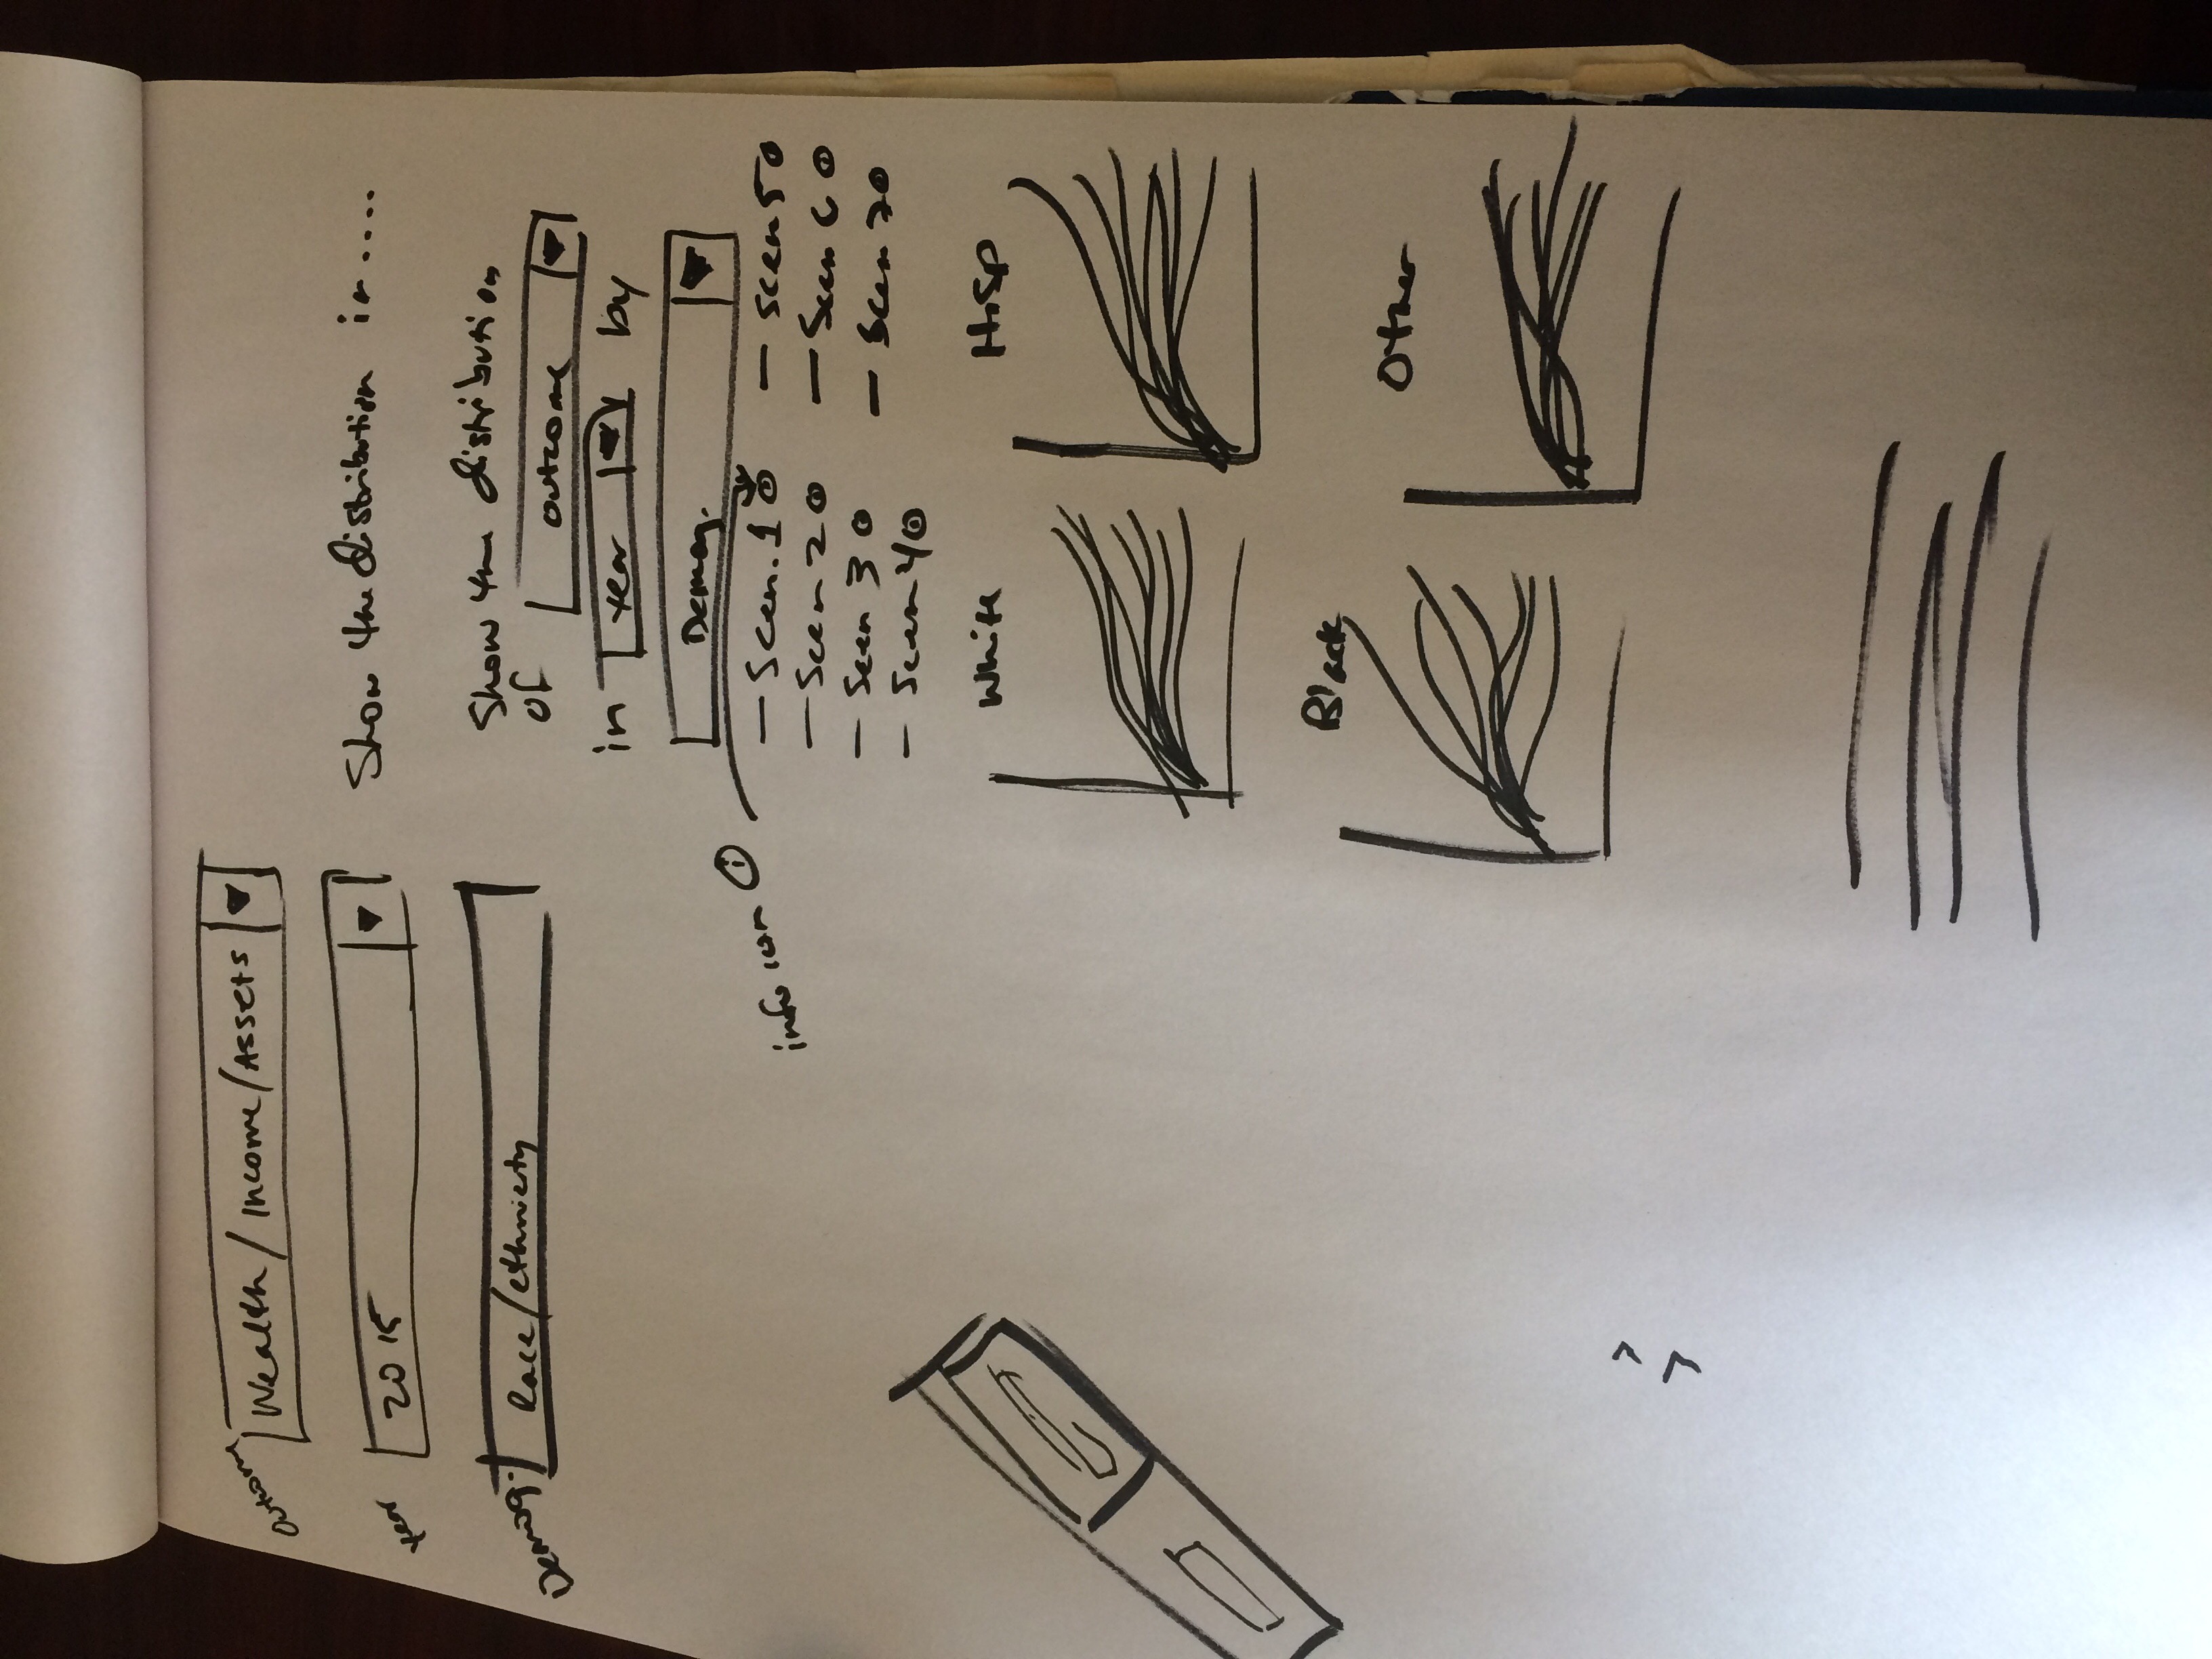 Outcome Wealth / Income / Assets
Year 2015
Demog. Race/ethnicity
Show the distribution in ....
Show the distribution
of outcome
in year by
Demog.
info icon i
— Scen. 1 i
— Scen 2 i
— Scen 3 i
— Scen 4 i
— Scen 5 i
— Scen 6 i
— Scen 7 i
White
Hisp
Black
Other